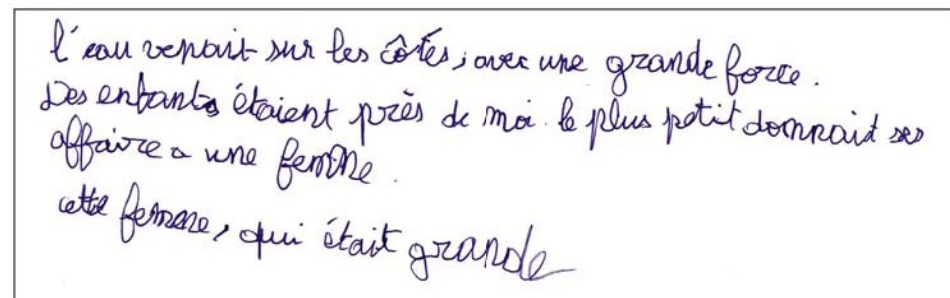 l'eau venait sur les côtés, avec une grande force.
Des enfants étaient près de moi. le plus petit donnait ses
affaire a une femme.
cette femme, qui était grande